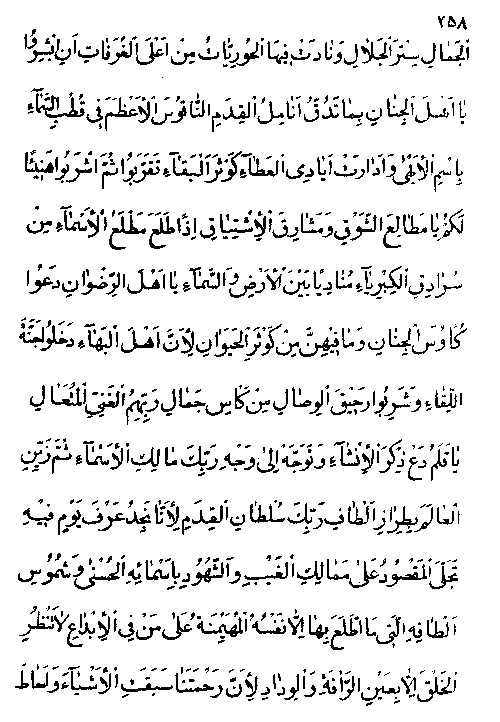 ٢٥٨
الجمال ستر الجلال و نادت فيها الحوريات من اعلى الغرفات ان ابشروا
يا اهل الجنان بما تدق انامل القدم الناقوس الاعظم فى قطب السمآء
باسم الابهى و ادارت ايادى العطآء كوثر البقآء تقربوا ثم اشربوا هنيئا
لكم يا مطالع الشوق و مشارق الاشتياق اذا طلع مطلع الاسمآء من
سرادق الكبريآء مناديا بين الارض و السمآء يا اهل الرضوان دعوا
كاوس الجنان و ما فيهن من كوثر الحيوان لان اهل البهآء دخلوا جنة
اللقآء و شربوا رحيق الوصال من كاس جمال ربهم الغنى المتعال
يا قلم دع ذكر الانشآء و توجه الى وجه ربك مالك الاسمآء ثم زين
العالم بطراز الطاف ربك سلطان القدم لانا نجد عرف يوم فيه
تجلى المقصود على ممالك الغيب و الشهود باسمائه الحسنى و شموس
الطافه التى ما اطلع بها الا نفسه المهيمنة على من فى الابداع لا تنظر
الخلق الا بعين الرافة و الوداد لان رحمتنا سبقت الاشيآء و احاط